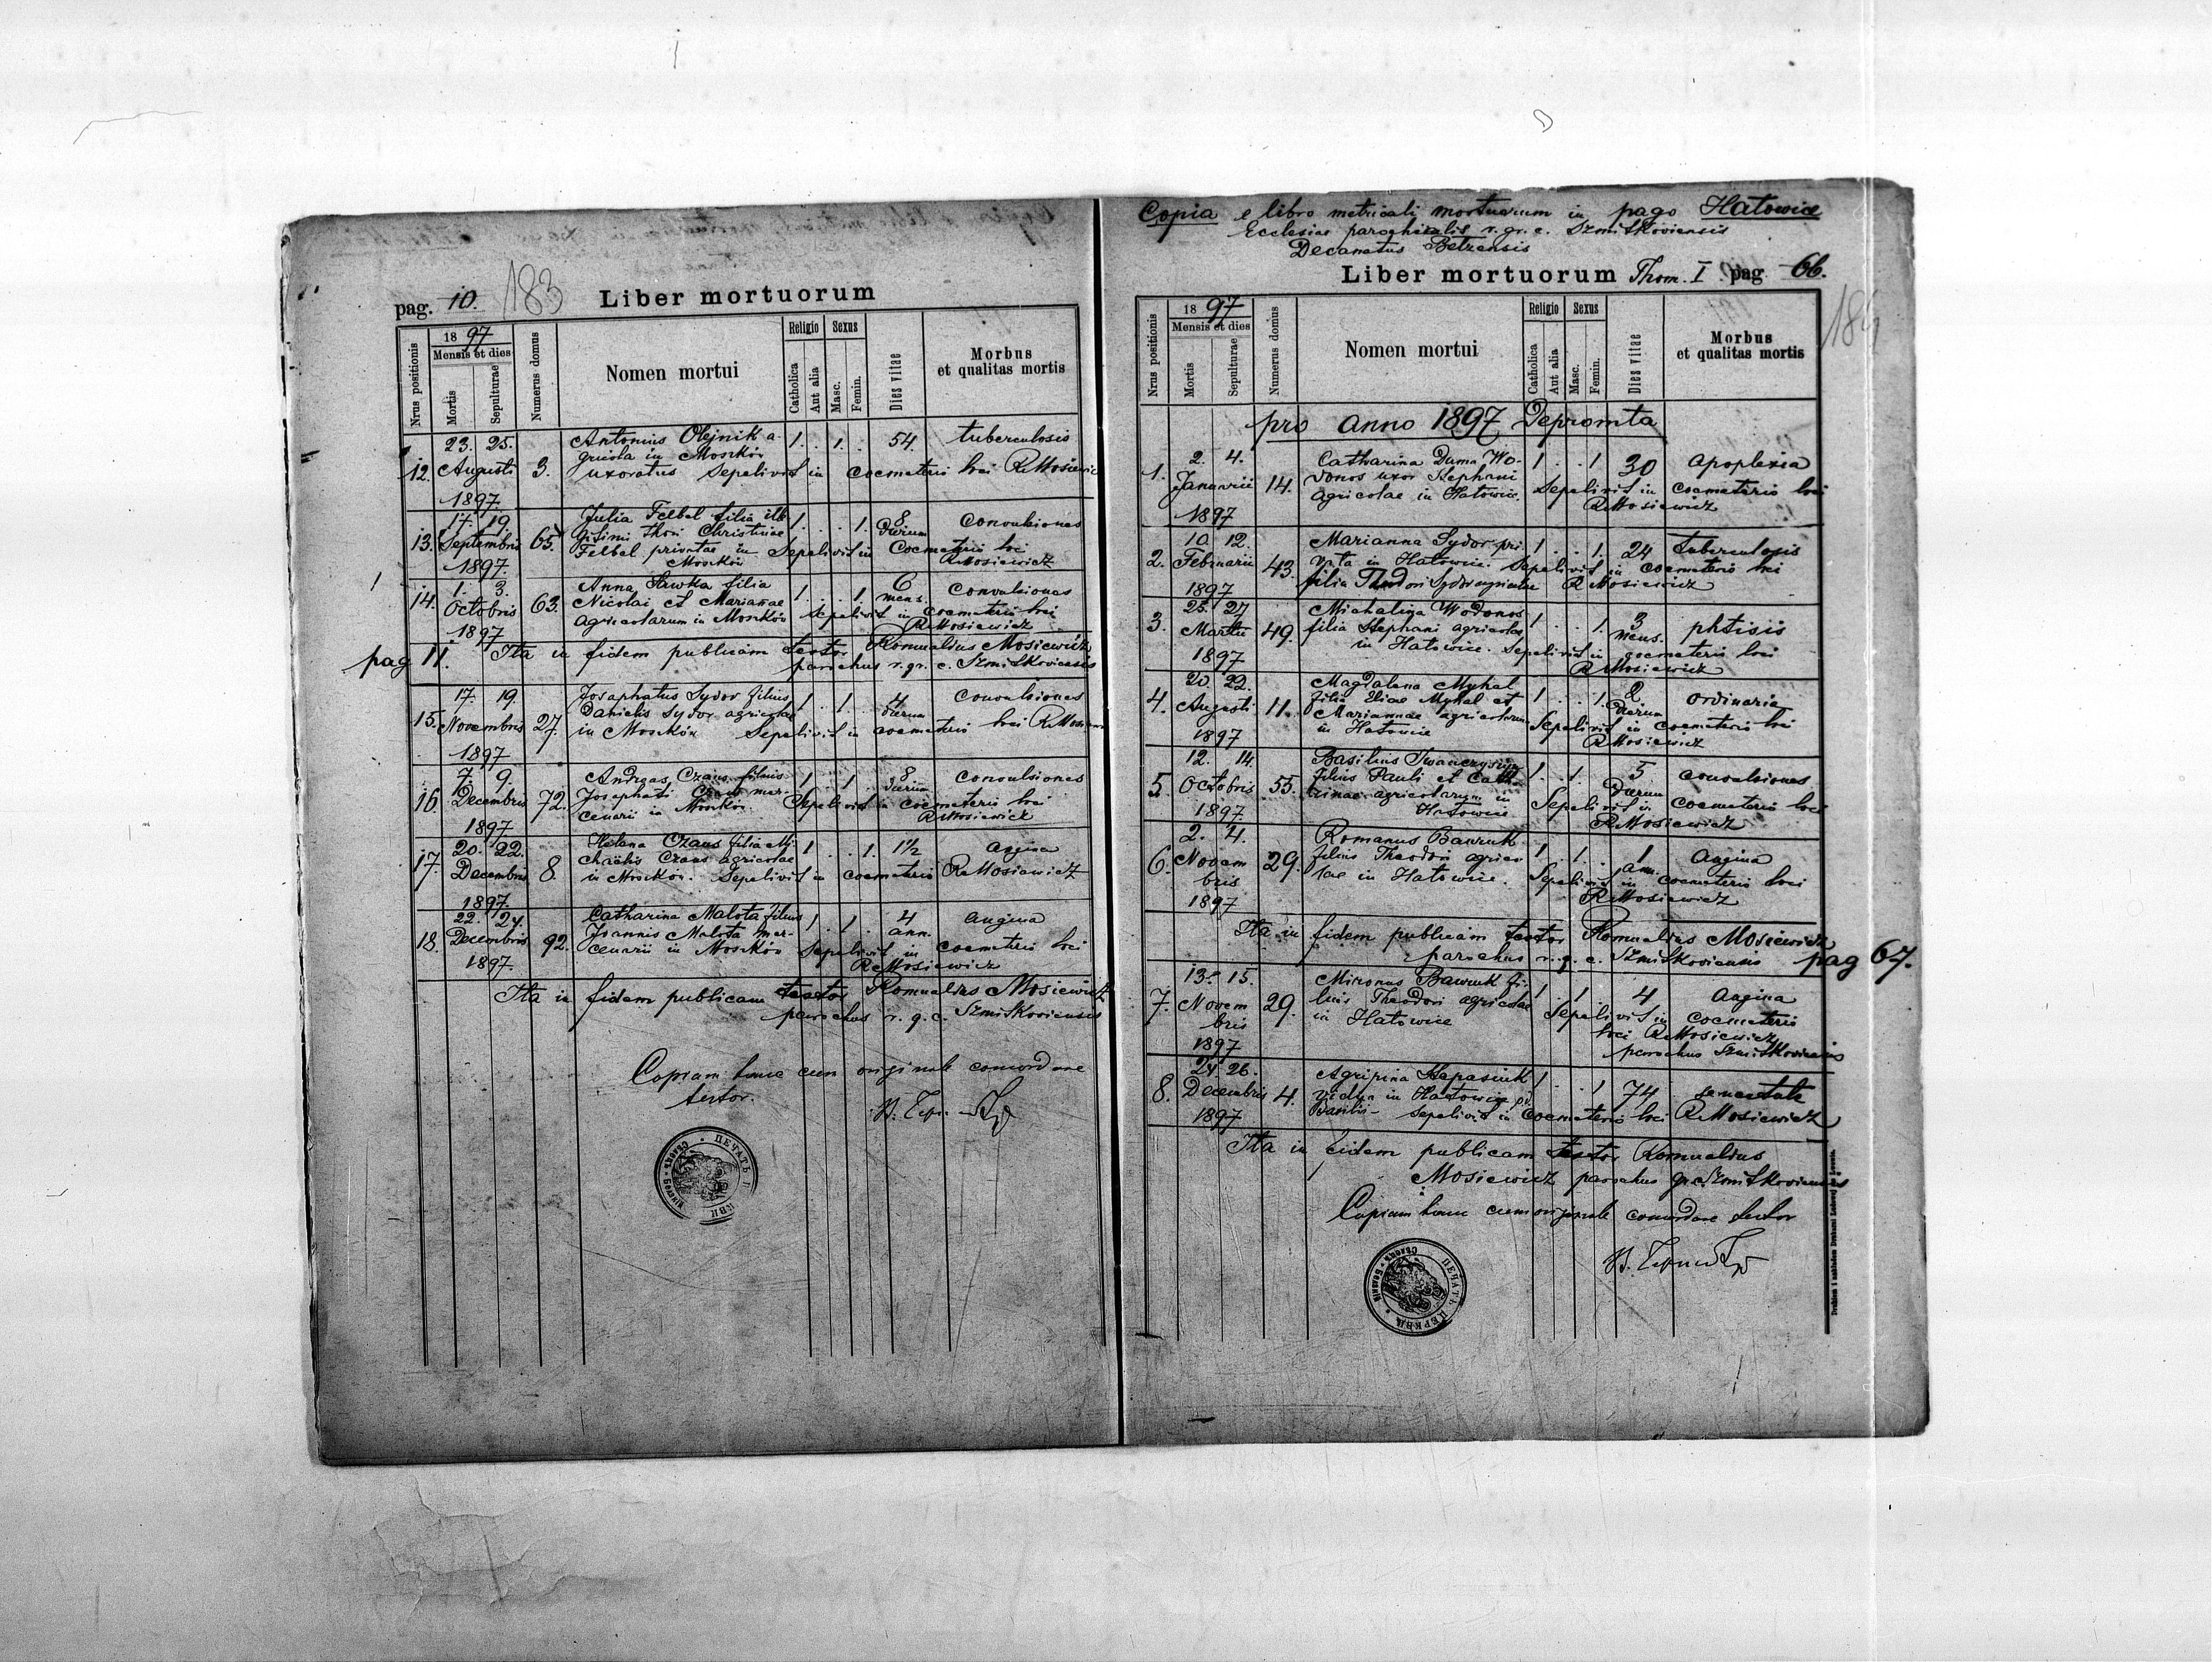 pag. 10. 183 Liber mortuorum
Nrus positionis
1897
Mensis et dies
Mortis
Sepulturae
Numerus domus
Nomen mortui
Religio
Catholica
Aut alia
Sexus
Masc.
Femin.
Dies vitae
Morbus
et qualitas mortis
23. 25. Antonius Olejnik a- 1. . 1. . 54. tuberculosis
12. Augusti 3. gricola in Moszków
uxoratus Sepelivit in coemeterio loci RMosiewicz
1897
17. 19. Julia Felbel filia ille- 1. . . 1. 8 convulsiones
13. Septembris 65. gitimi thori Christinae dierum
Felbel privatae in Sepelivit in Coemeterio loci
1897. Moszków RMosiewicz
1. 3. Anna Hawka filia 1. . . 1. 6 convulsiones
14. Octobris 63. Nicolai et Mariannae mens.
agricolarum in Moszków Sepelivit in coemeterio loci
1897 RMosiewicz
pag 11. Ita in fidem publicam testor Romualdus Mosiewicz
parochus r. gr. c. Szmitkoviensis
17. 19. Josaphatus Sydor filius 1. . 1. . 4 convulsiones
15. Novembris 27. Danielis Sydor agricolae dierum
in Moszków Sepelivit in coemeterio loci RMosiewicz
1897
7. 9. Andreas Czaus filius 1. . 1. . 8 convulsiones
16. Decembris 72. Josaphati Czaus mer- dierum
cenarii in Moszków. Sepelivit in coemeterio loci
1897 RMosiewicz
20. 22. Helena Czaus filia Mi- 1. . . 1. 1½ angina
17. Decembris 8. chaëlis Czaus agricolae
in Moszków. Sepelivit in coemeterio RMosiewicz
1897
22. 24. Catharina Malota filius 1. . 1. . 4 angina
18. Decembris 92. Joannis Malota mer- ann.
cenarii in Moszków Sepelivit in coemeterio loci
1897. RMosiewicz
Ita in fidem publicam testor Romualdus Mosiewicz
parochus r. g. c. Szmitkoviensis
Copiam hanc cum originale concordare
testor.
ПЕЧАТЬ
Copia e libro metricali mortuorum in pago Hatowice
Ecclesiae parochialis r. gr. c. Szmitkoviensis
Decanatus Betzensis
Liber mortuorum Thom. I pag 66.
184
Nrus positionis
1897
Mensis et dies
Mortis
Sepulturae
Numerus domus
Nomen mortui
Religio
Catholica
Aut alia
Sexus
Masc.
Femin.
Dies vitae
Morbus
et qualitas mortis
pro anno 1897 Depromta
2. 4. Catharina Duma Wo- 1 . . 1 30 apoplexia
1. Januarii 14. donos uxor Stephani
agricolae in Hatowice. Sepelivit in coemeterio loci
1897 RMosiewicz
10. 12. Marianna Sydor pri- 1. . . 1. 24 tuberculosis
2. Februarii 43. vata in Hatowice. Sepelivit in coemeterio loci
1897 filia Theodori Sydor agricolae RMosiewicz
25. 27 Michalina Wodonos 1. . . 1. 3 phtisis
3. Martii 49. filia Stephani agricolae mens.
in Hatowice. Sepelivit in coemeterio loci
1897 RMosiewicz
20. 22. Magdalena Myhal 1. . . 1. 2 ordinaria
4. Augusti 11. filia Eliae Myhal et dierum
Mariannae agricolarum Sepelivit in coemeterio loci
1897 in Hatowice RMosiewicz
12. 14. Basilius Iwanczyszyn 1. . 1. . 5 convulsiones
5. Octobris 55. filius Pauli et Catha- dierum
rinae agricolarum in Sepelivit in coemeterio loci
1897. Hatowice RMosiewicz
2. 4. Romanus Bawruk 1. . 1. . 1 angina
6. Novem 29. filius Theodori agrico ann.
bris lae in Hatowice. Sepelivit in coemeterio loci
1897 RMosiewicz
Ita in fidem publicam testor Romualdus Mosiewicz
parochus r. g. c. Szmitkoviensis pag 67.
13. 15. Mironus Bawruk fi- 1 . 1 . 4 angina
7. Novem 29. lius Theodori agricolae
bris in Hatowice Sepelivit in coemeterio
loci RMosiewicz
1897 parochus Szmitkoviensis
24 26. Agripina Stepasiuk 1 . . 1 74 senectute
8. Decembris 4. vidua in Hatowice p.
1897 Basilii - Sepelivit in coemeterio loci RMosiewicz
Ita in fidem publicam testor Romualdus
Mosiewicz parochus gr. c. Szmitkoviensis
Copiam hanc cum originale concordare testor
ПЕЧАТЬ ЦЕРКВИ